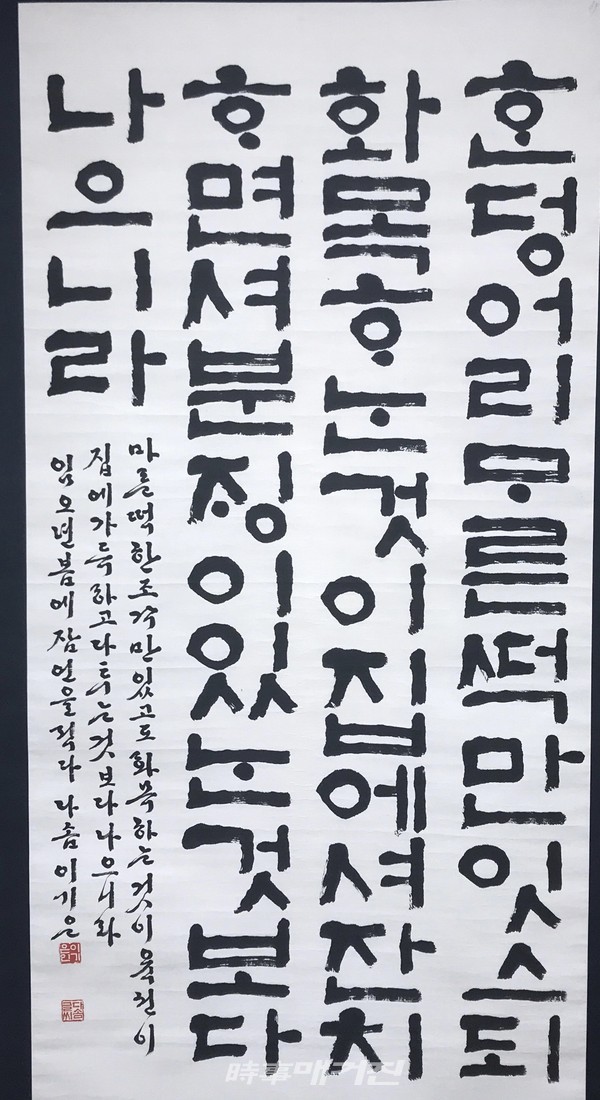 ᄒᆞᆫ덩어리ᄆᆞ른ᄯᅥᆨ만잇스되
화목ᄒᆞᄂᆞᆫ것이집에셔잔치
ᄒᆞ면셔분ᄌᆡᆼ이잇ᄂᆞᆫ것보다
나으니라
마른떡한조각만있고도화목하는것이육선이
집에가득하고다투는것보다나으니라
임오년봄에잠언을적다 이기은
時事매거진